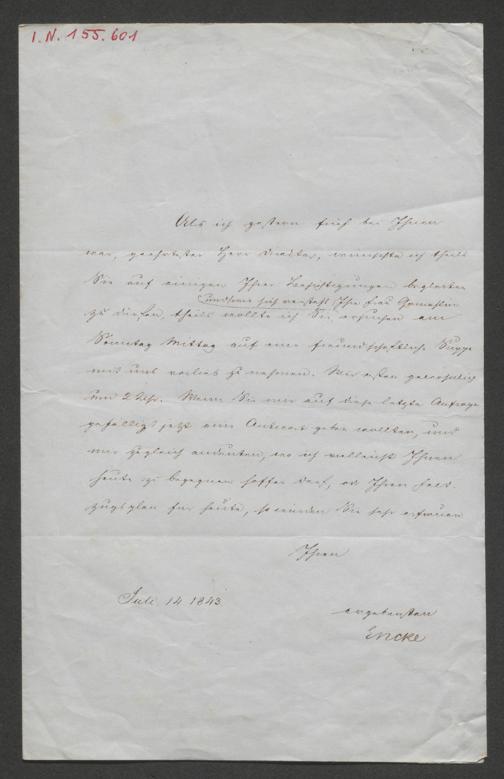 I. N. 155.601
Als ich gestern früh bei Ihnen
war, geehrtester Herr Director, wünschte ich theils
Sie auf einigen Ihrer Besichtigungen begleiten
(und wie sich versteht Ihre Frau Gemahlin
zu dürfen, theils wollte ich Sie ersuchen am
Sonntag Mittag auf eine freundschaftliche Suppe
mit uns vorlieb zu nehmen. Wir essen gewöhnlich
um 2 Uhr. Wenn Sie mir auf diese letzte Anfrage
gefälligst jetzt eine Antwort geben wollten, und
mir zugleich andeuten, wo ich vielleicht Ihnen
heute zu begegnen hoffen darf, od Ihren Feld-
zugsplan für heute, so würden Sie sehr erfreuen
Ihren
Juli 14 1843
ergebensten
Encke